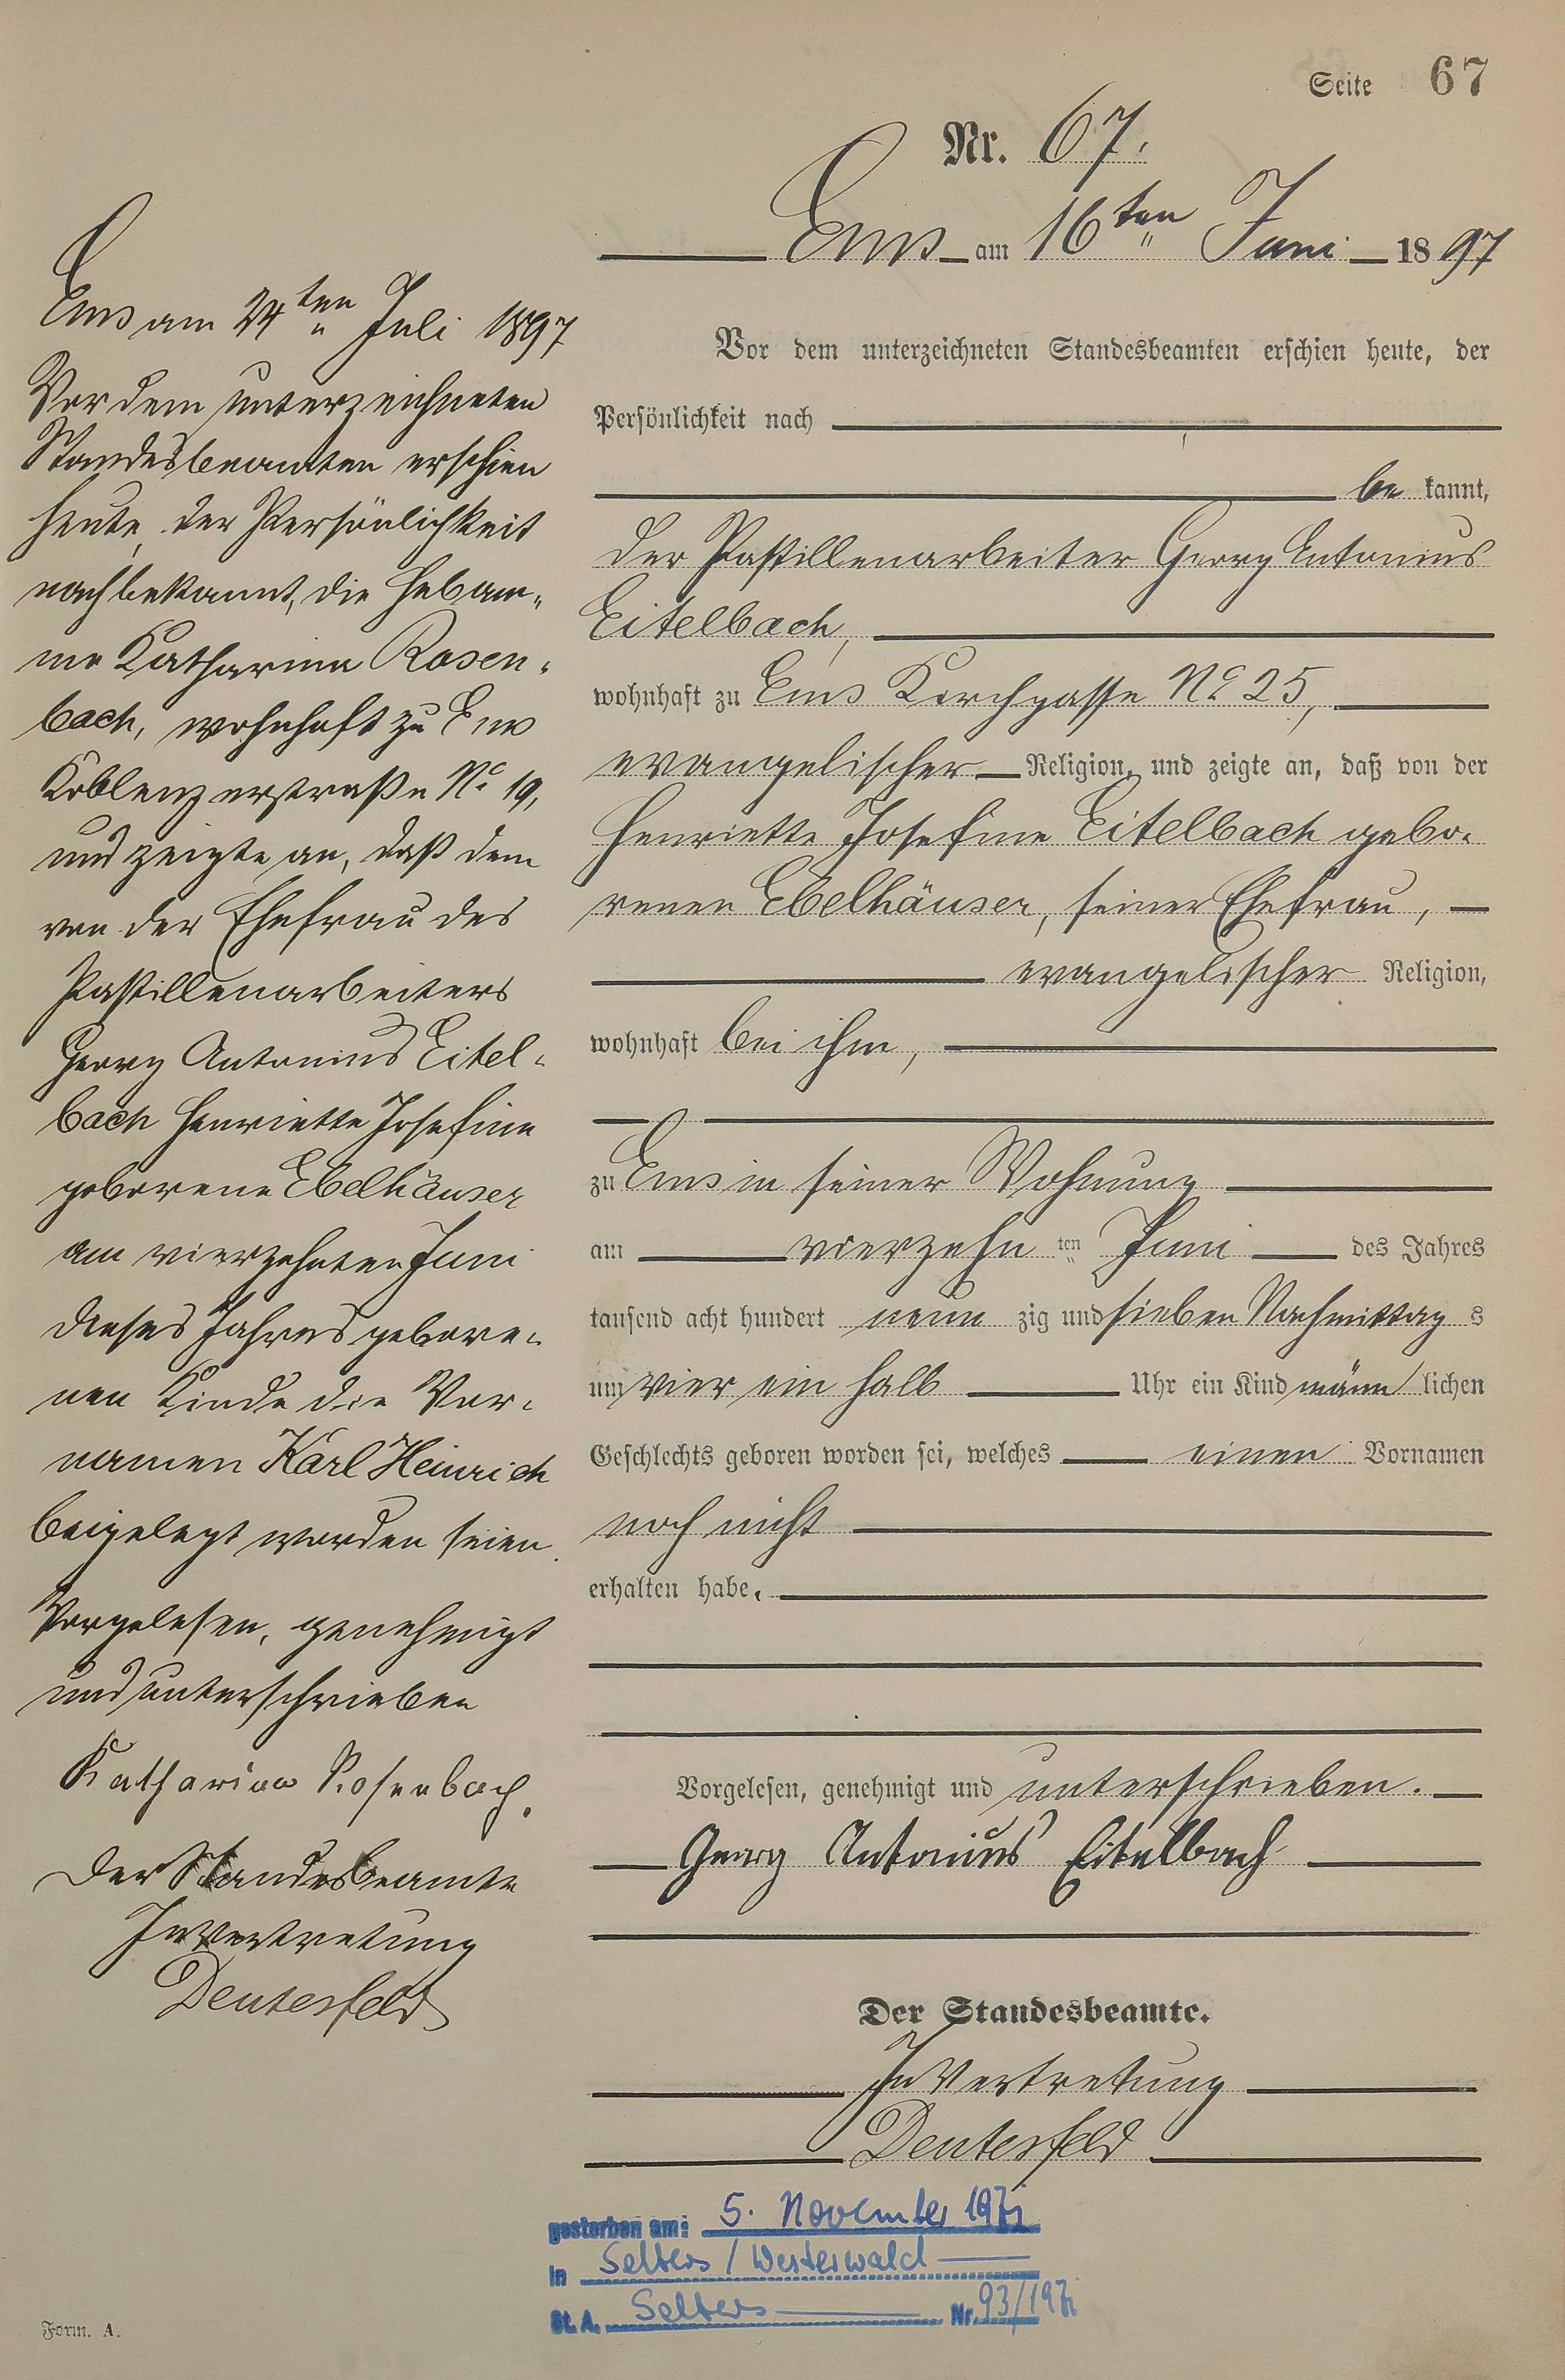 Seite 67
Nr. 67.
Ems am 16ten Juni 1897
Vor dem unterzeichneten Standesbeamten erschien heute, der
Persönlichkeit nach
be kannt,
der Pastillenarbeiter Georg Antonius
Eitelbach,
wohnhaft zu Ems Kirchgasse No 25,
evangelischer Religion, und zeigte an, daß von der
Henriette Josefine Eitelbach gebo-
renen Ebelhäuser, seiner Ehefrau,
evangelischer Religion,
wohnhaft bei ihm,
zu Ems in seiner Wohnung
am vierzehn ten Juni des Jahres
tausend acht hundert neun zig und sieben Nachmittag s
um vier ein halb Uhr ein Kind männ lichen
Geschlechts geboren worden sei, welches einen Vornamen
noch nicht
erhalten habe.
Vorgelesen, genehmigt und unterschrieben.
Georg Antonius Eitelbach
Der Standesbeamte.
In Vertretung
Deutesfeld
Ems am 24ten Juli 1897
Vor dem unterzeichneten
Standesbeamten erschien
heute, der Persönlichkeit
nach bekannt, die Hebam-
me Katharina Rosen-
bach, wohnhaft zu Ems
Koblenzerstraße No 19,
und zeigte an, daß dem
von der Ehefrau des
Pastillenarbeiters
Georg Antonius Eitel-
bach Henriette Josefine
geborene Ebelhäuser
am vierzehnten Juni
dieses Jahres gebore-
nen Kinde die Vor-
namen Karl Heinrich
beigelegt worden seien.
Vorgelesen, genehmigt
und unterschrieben
Katharina Rosenbach.
Der Standesbeamte
In Vertretung
Deutesfeld
gestorben am: 5. November 197
in Selters / Westerwald
St. A. Selters Nr. 93/197
Form. A.